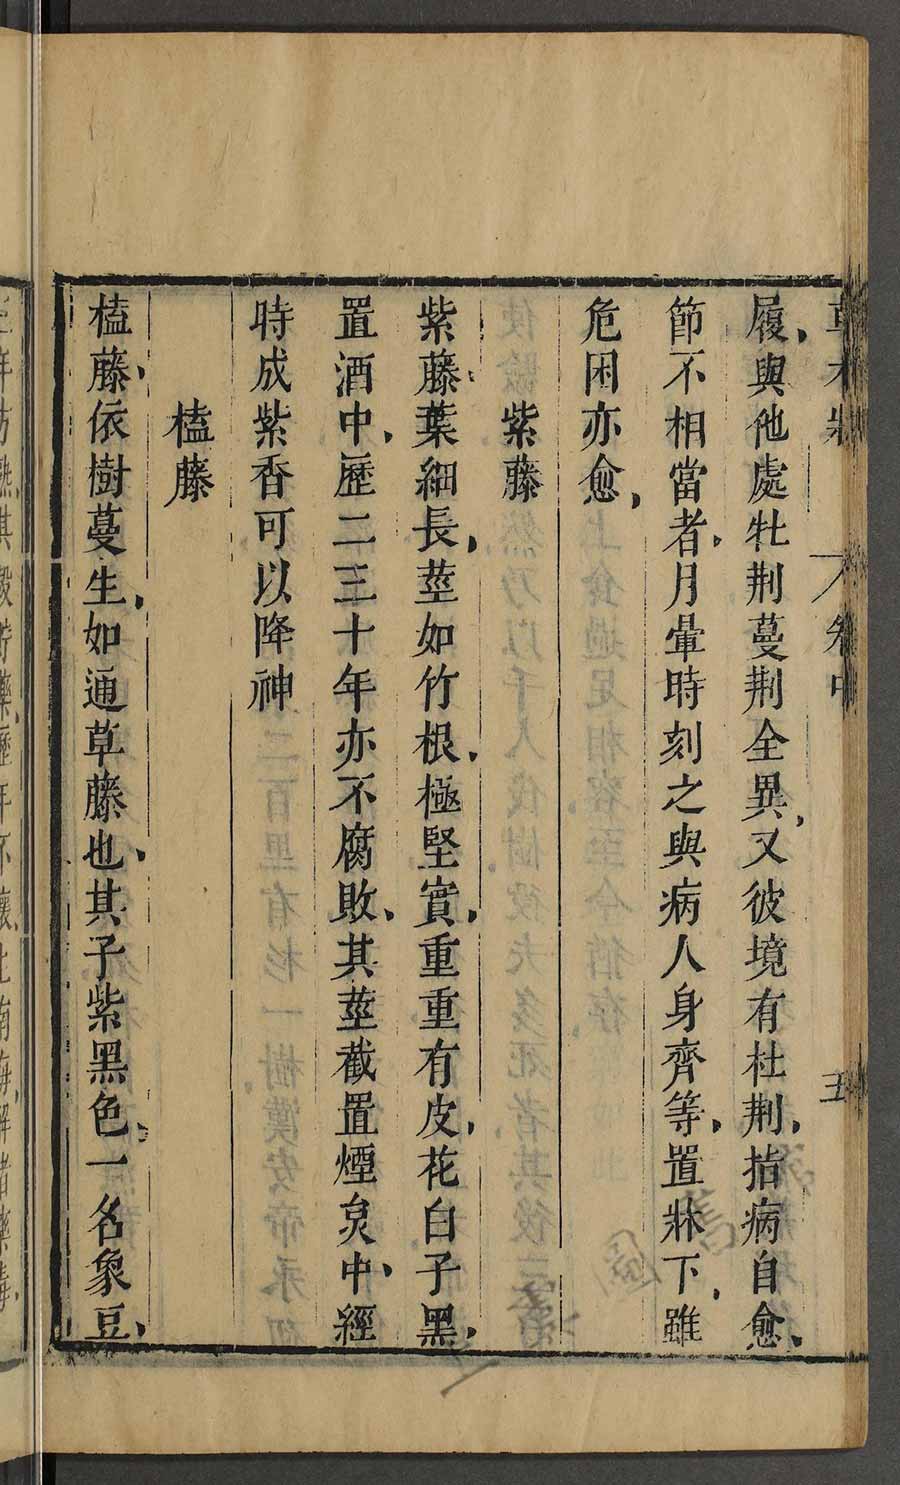 草木狀 卷中 五
履與他處牡荆蔓荆全異又彼境有杜荆指病自愈
節不相當者月暈時刻之與病人身齊等置牀下雖
危困亦愈
紫藤
紫藤葉細長莖如竹根極堅實重重有皮花白子黑
置酒中歷二三十年亦不腐敗其莖截置煙炱中經
時成紫香可以降神
榼藤
榼藤依樹蔓生如通草藤也其子紫黑色一名象豆